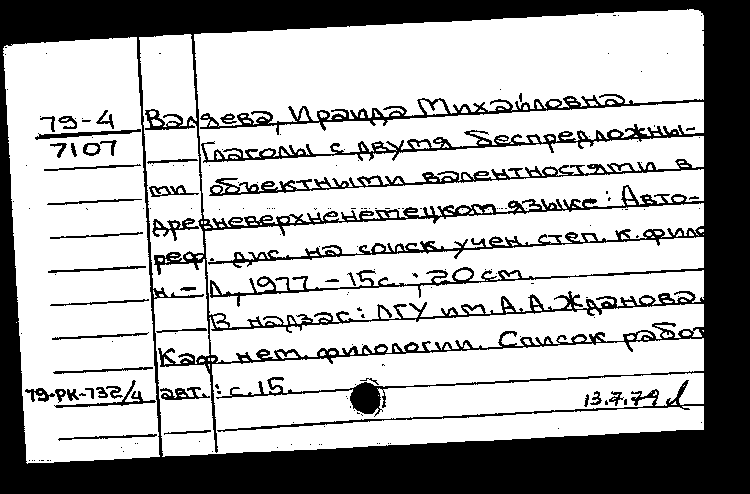 79-4 Валяева, Ираида Михайловна.
7107 Глаголы с двумя беспредложны-
ми объектными валентностями в
древневерхненемецком языке: Авто-
реф. дис. на соиск. учен. степ. к. филол
н. - Л., 1977. - 15с.; 20 см.
В надзаг: ЛГУ им. А. А. Жданова.
Каф. нем. филологии. Список работ
79-РК-732/4 авт.: с. 15.
13.7.79